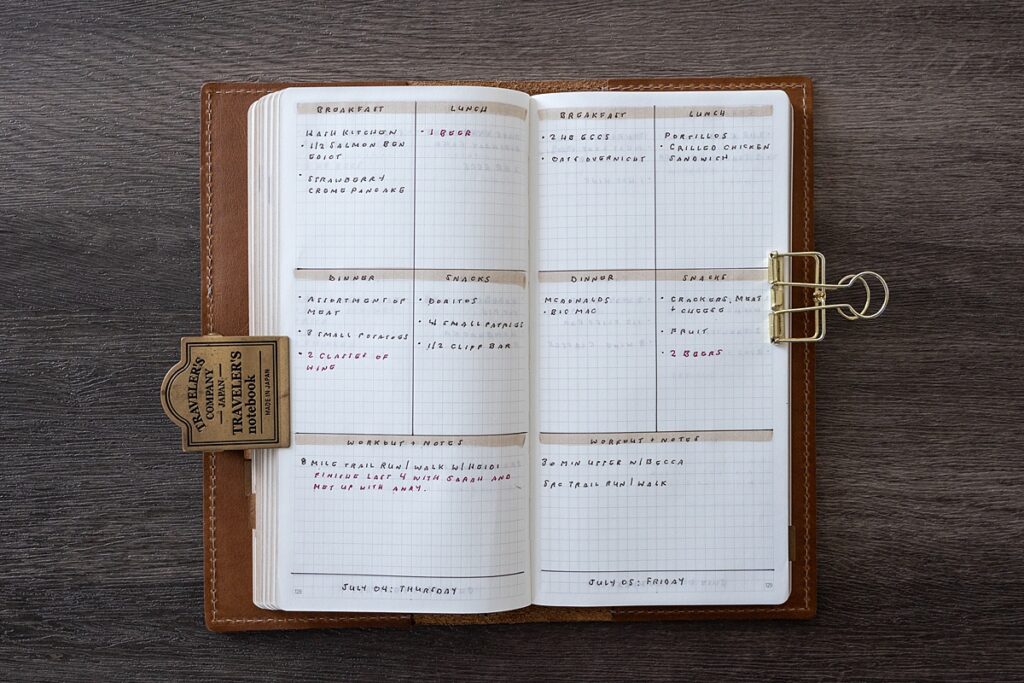 BREAKFAST
HASH KITCHEN
· 1/2 SALMON BEN
EDICT
· STRAWBERRY
CREME PANCAKE
LUNCH
· 1 BEER
DINNER
· ASSORTMENT OF
MEAT
· SMALL POTATOES
· 2 GLASSES OF
WINE
SNACKS
· DORITOS
· 4 SMALL POTATOES
· 1/2 CLIFF BAR
WORKOUT + NOTES
8 MILE TRAIL RUN/WALK W/HEIDI
FINISH LAST 4 WITH SARAH AND
MET UP WITH ANDY.
JULY 04: THURSDAY
128
BREAKFAST
· 2 HB EGGS
· OATS OVERNIGHT
LUNCH
PORTILLOS
· GRILLED CHICKEN
SANDWICH
DINNER
MCDONALDS
· BIG MAC
SNACKS
· CRACKERS, MEAT
+ CHEESE
· FRUIT
· 2 BEERS
WORKOUT + NOTES
30 MIN UPPER W/BECCA
TRAIL RUN/WALK
JULY 05: FRIDAY
129
TRAVELER'S
COMPANY
JAPAN
TRAVELER'S
notebook
MADE IN JAPAN